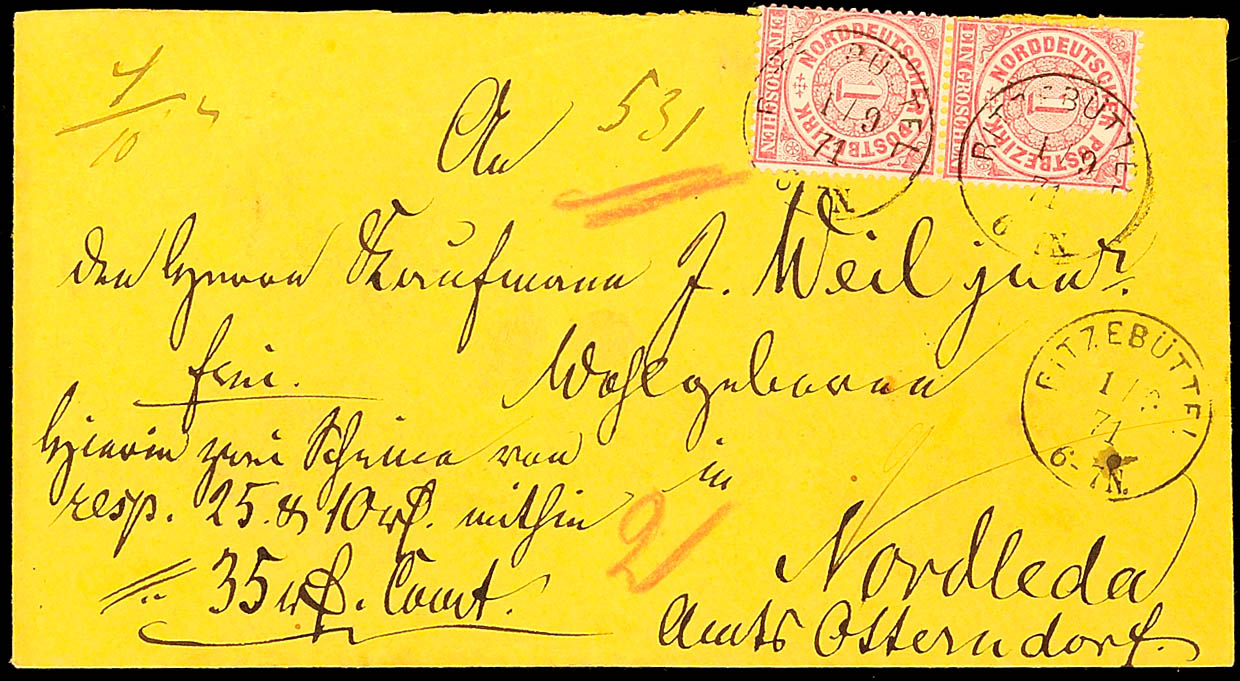 4/10
An
531
den Herrn Kaufmann J. Weil junr.
frei.
Wohlgeboren
Hierin zwei Scheine von
resp. 25. & 10 rβ. mithin
35 rβ. Court.
in
2
Nordleda
Amts Otterndorf.
NORDDEUTSCHER POSTBEZIRK
EIN GROSCHEN
1
NORDDEUTSCHER POSTBEZIRK
EIN GROSCHEN
1
RITZEBÜTTEL
1/9
71
6-7N.
RITZEBÜTTEL
1/9
71
6-7N.
RITZEBÜTTEL
1/9
71
6-7N.